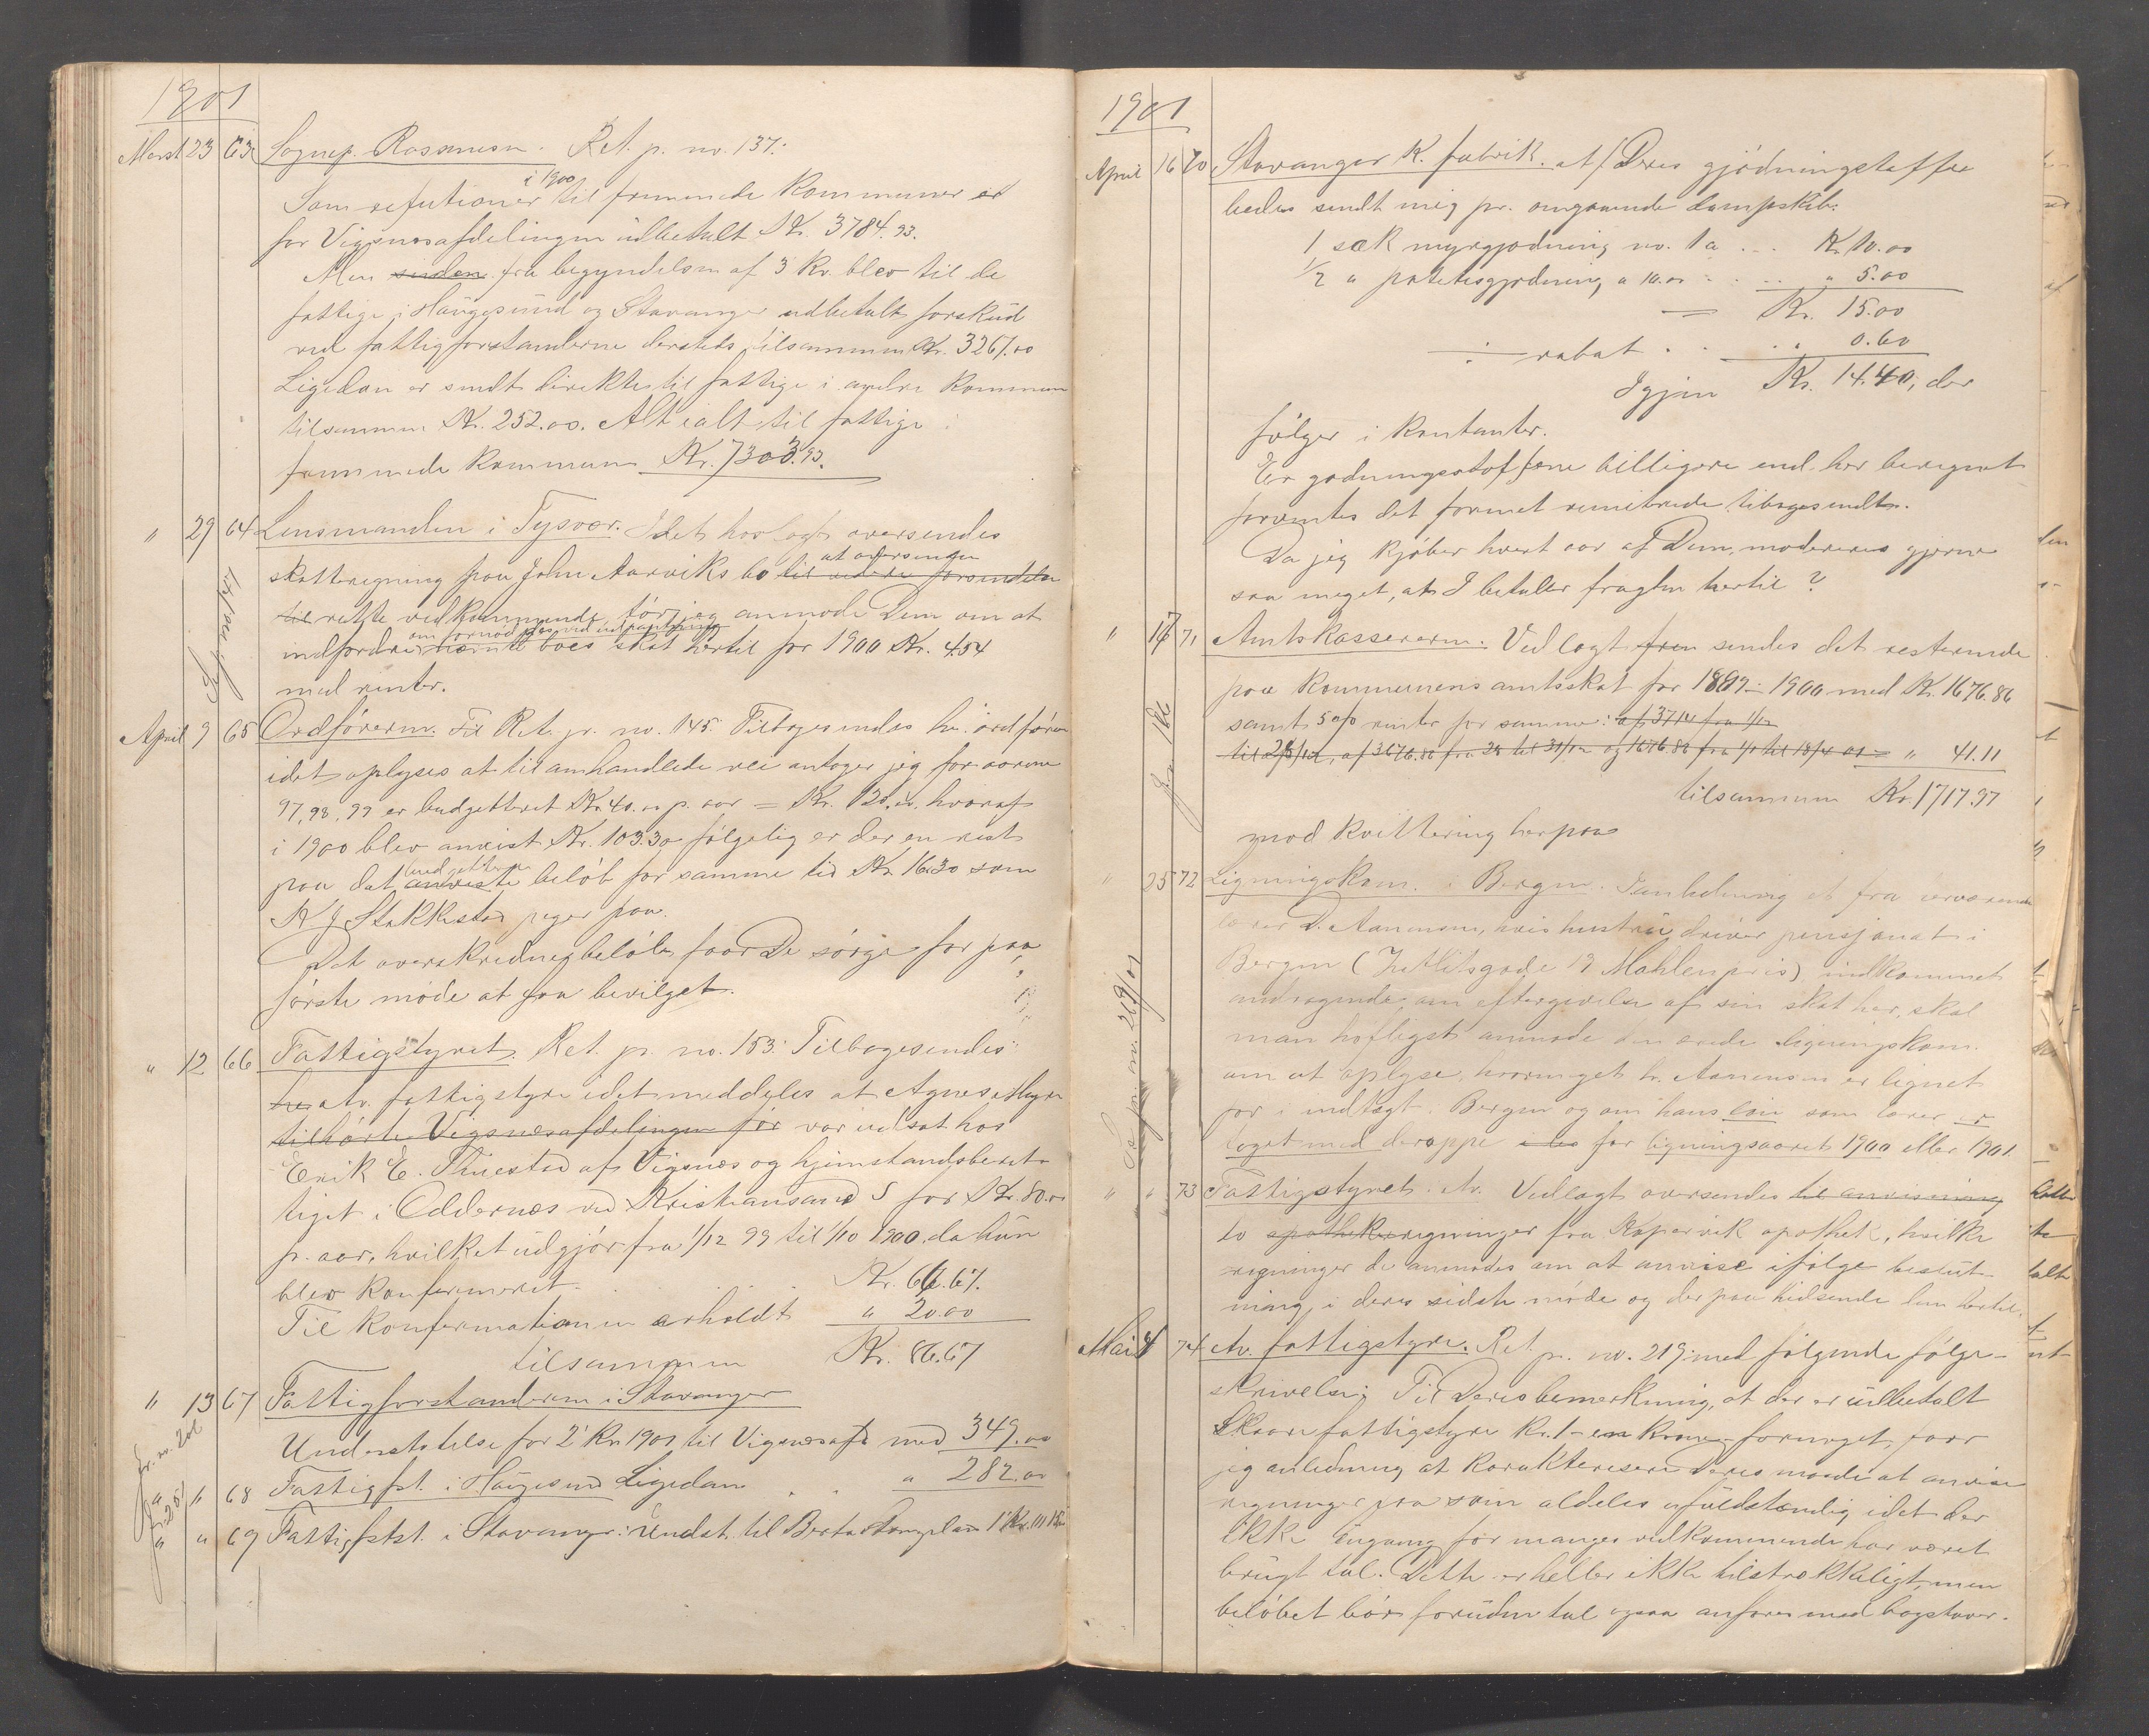 1901
Marst 23 63 Sognep. Rasmusen. Ret. p. no. 137.
i 1900
Som refutioner til fremmede Kommuner er
for Vigsnesafdelingen udbetalt Kr. 3784.93.
Men siden fra begyndelsen af 3 Kv. blev til de
fattige i Haugesund og Stavanger udbetalt forskud
ved fattigforstanderne dersteds tilsammen Kr. 3267.00
Ligedan er sendt direkte til fattige i andre Kommuner
tilsammen Kr. 252.00. Alt ialt til fattige i
fremmede Kommuner Kr. 7303.93.
" 29 64 Lensmanden i Tysvær. Idet hoslagt oversendes
at oversende
skatteregning paa John Aarviks bo til videre forsendelse
til rette vedkommende, tør jeg anmode Dem om at
om fornødiges ved udpantning
indfordre nævnte boes skat hertil for 1900 Kr. 4.54
med renter.
April 9 65 Ordføreren. Til Ret. jr. no. 145. Tilbagesendes hr. ordfører
idet oplyses at til amhandlede vei antager jeg for aarene
97, 98, 99 er budgetteret Kr. 40.00 p. aar = Kr. 120.00. hvoraf
i 1900 blev anvist Kr. 103.30 følgelig er der en rest
budgetterte
paa det anviste beløb for samme tid Kr. 16.30 som
K J Stakkestad peger paa.
Det overskredne beløb faar De sørge for paa
første møde at faa bevilget.
" 12 66 Fattigstyret. Ret. p. no. 153. Tilbagesendes
hr Av. fattigstyre idet meddeles at Agnes
tilhørte Vigsnesafdelingen før var udsat hos
Erik E. Thuestad af Vigsnes og hjemstandsberet-
tiget i Oddernes ved Kristiansand S for Kr. 80.00
p. aar, hvilket udgjør fra 1/12 99 til 1/10 1900, da hun
blev konfirmeret. . . . . Kr. 66.67.
Til Konfirmationen erholdt " 20.00
tilsammen Kr. 86.67
" 13 67 Fattigforstanderen i Stavanger
Understøttelse for 2' Kv. 1901 til Vigsnesafd med 349.00
" " 68 Fattigfst. i Haugesund Ligedan . . " 282.00
" " 69 Fattigfstst. i Stavanger: Underst. til Berta
1901
April 16 70 Stavanger K. fabrik. af Deres gjødningstoffer
bedes sendt mig pr. omgaaende dampskib:
1 sæk myrgjødning no. 1a ... Kr. 10.00
1/2 " potetesgjødning a 10.00 . . . . " 5.00
= Kr. 15.00
÷ rabat . . . " 0.60
Igjen Kr. 14.40, der
følger i kontanter.
Er gødningsstoffene billigere end her beregnet
forventes det formet remiterede tilbagesendt.
Da jeg kjøber hvert aar af Dem, modereres gjerne
saa meget, at I betaler fragten hertil?
" 17 71 Amtskassereren. Vedlagt frem sendes det resterende
paa Kommunens amtsskat for 1899-1900 med Kr. 1676.86
samt 5 0/0 renter for samme: af 3714 fra 1/12
til 28/12, af 3676.86 fra 28 til 31/12 og 1676.86 fra 1/1 til 18/4 01 = " 41.11
tilsammen Kr. 1717.97
mod kvittering herpaa
" 25 72 Ligningskom. i Bergen. I anledning et fra værende
lærer D. Aanensen, hvis hustru driver pensjonat i
Bergen ( 13 Møhlenpris) indkommet
andragende om eftergivelse af sin skat her, skal
man høfligst anmode den ærede ligningskom.
om at oplyse, hvormeget hr. Aanensen er lignet
for i indtægt i Bergen og om hans løn som lærer er
taget med deroppe i les for ligningsaaret 1900 eller 1901.
" " 73 Fattigstyret. Av. Vedlagt oversendes til anvisning
to apothekerregninger fra Kopervik apothek, hvilke
regninger de anmodes om at anvise ifølge beslut-
ning i deres sidste møde og derpaa hidsende dem hertil.
Mai 4 74 Av. fattigstyre. Ret p. no. 219. med følgende følge-
skrivelse; Til Deres bemerkning, at der er udbetalt
Skaare fattigstyre Kr. 1 - en krone - formeget, faar
jeg anledning at karakterisere Deres maade at anvise
regninger paa som aldeles ufuldstændig idet der
ikke engang for manges vedkommende har været
brugt tal. Dette er heller ikke tilstrækkeligt, men
beløbet bør foruden tal ogsaa anføres med bogstaver.